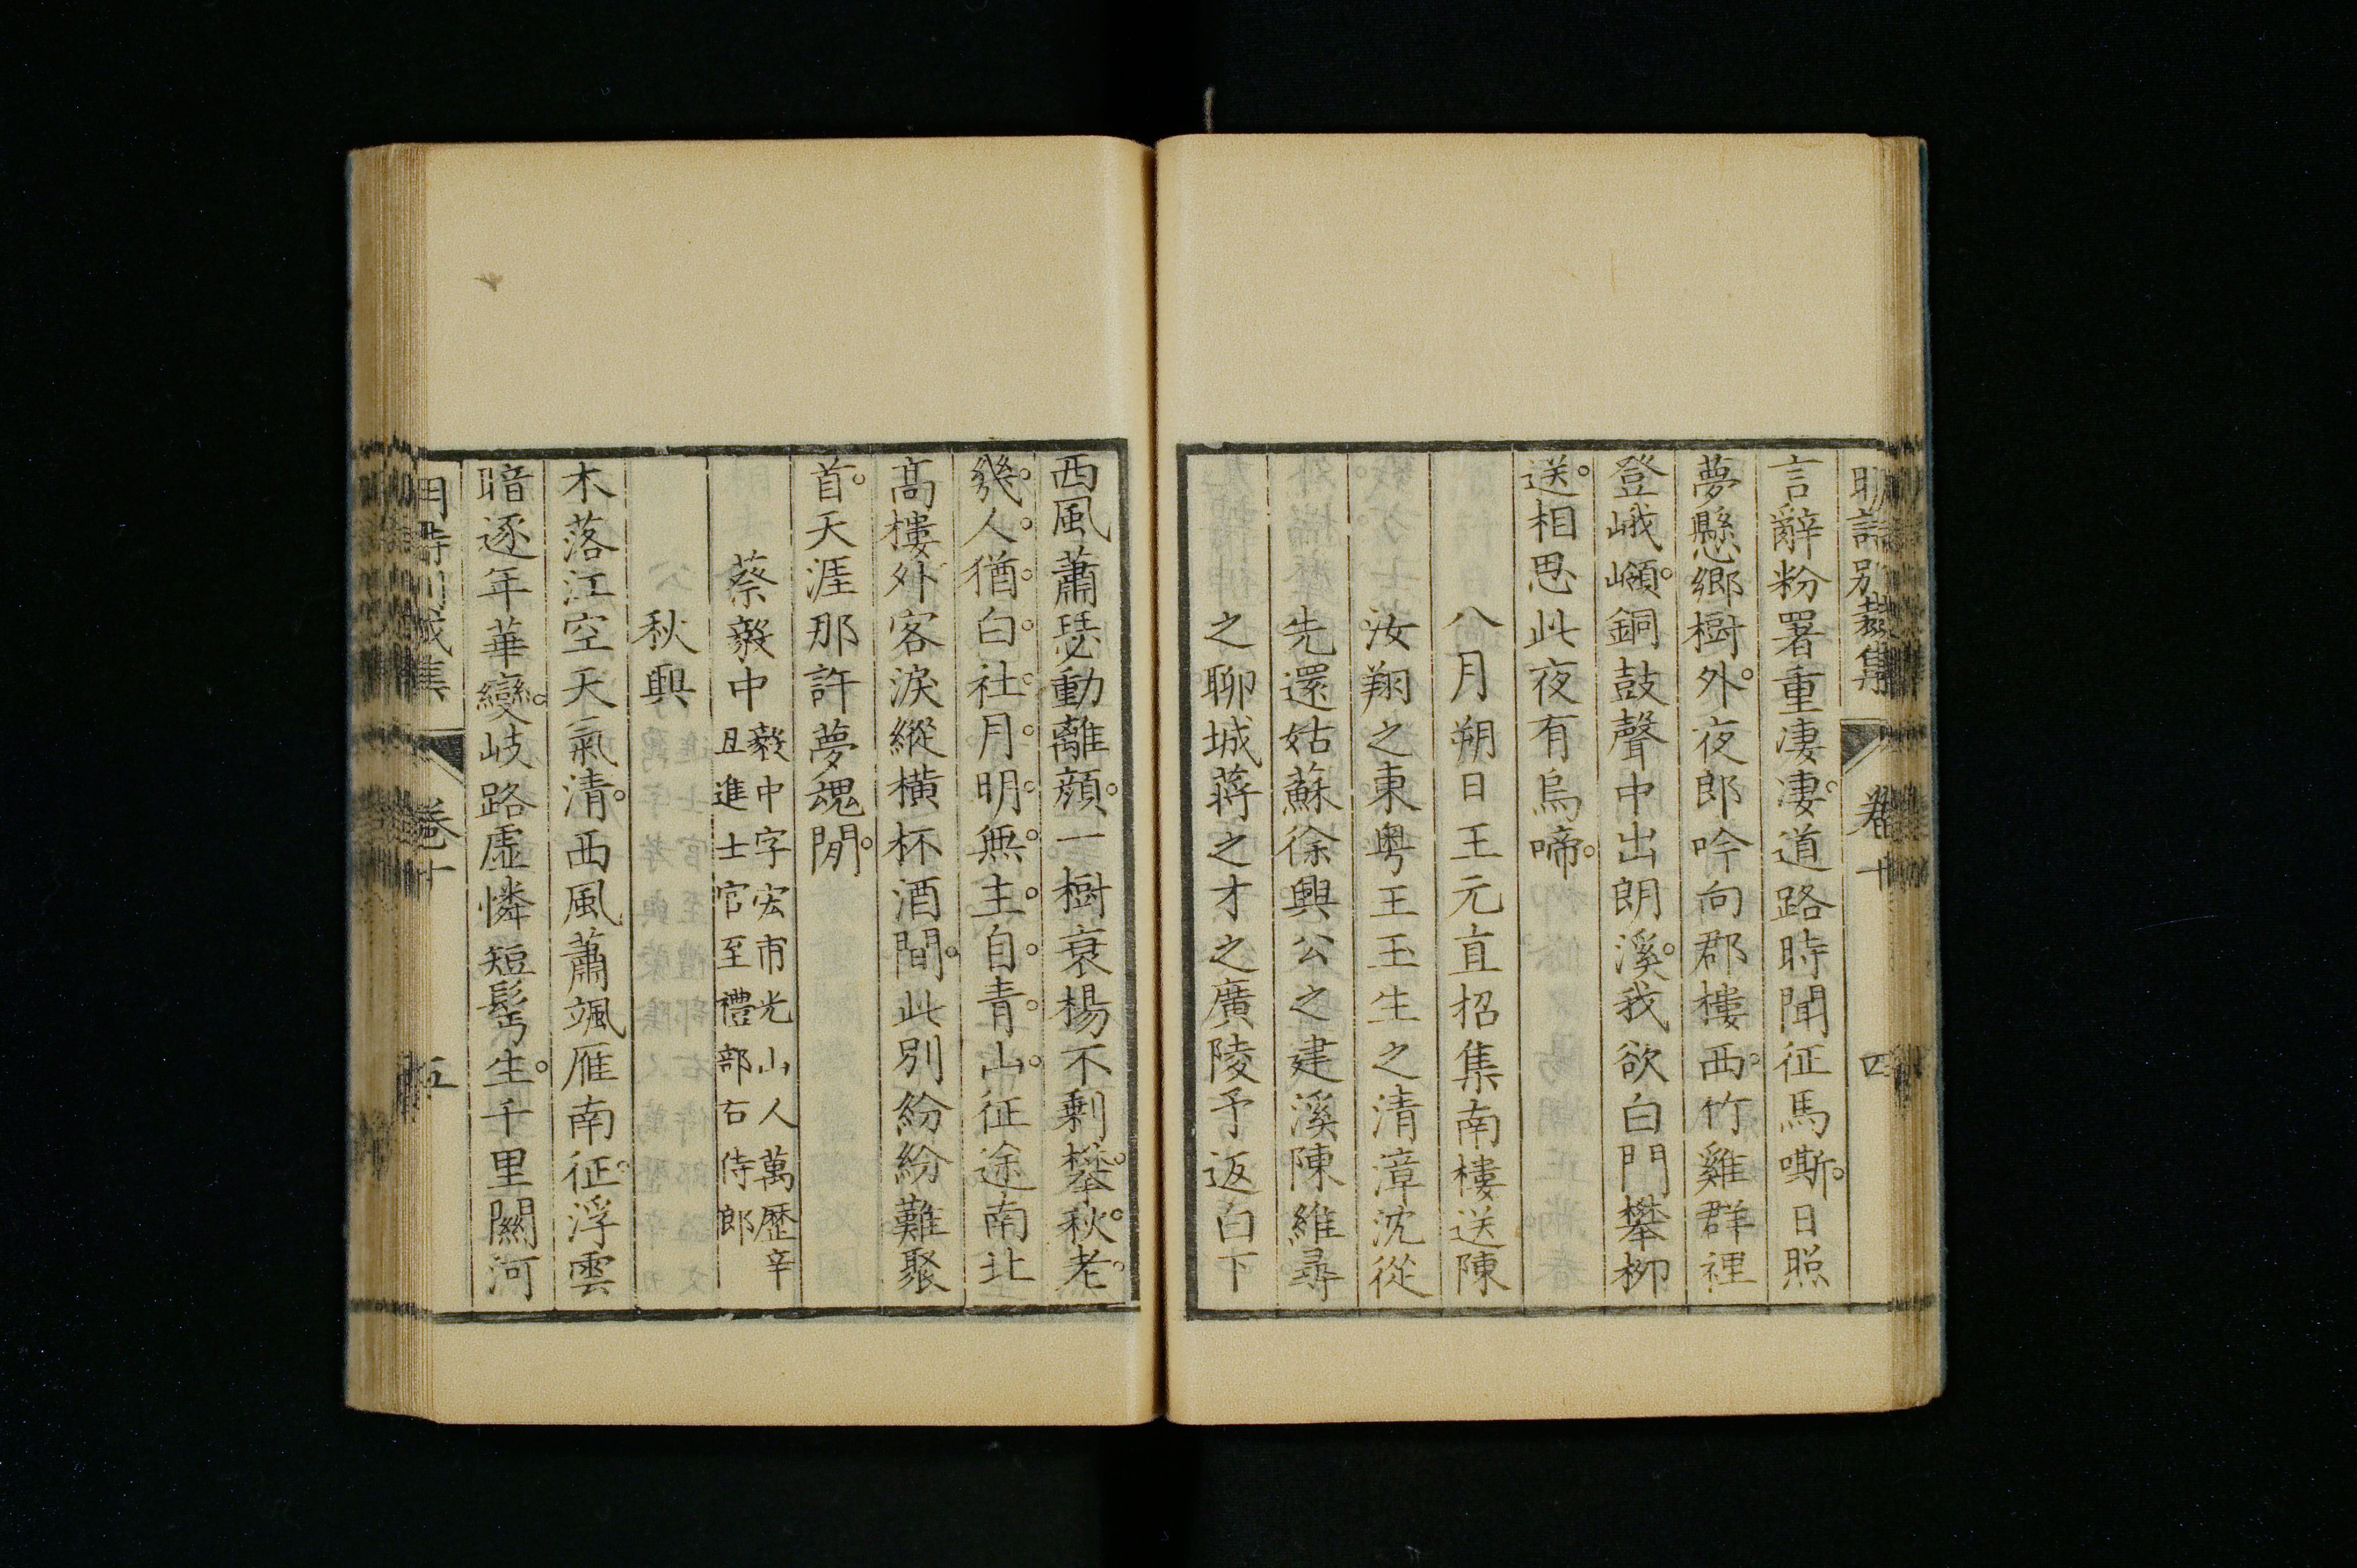 明詩別裁集 卷十 四
言辭粉署重淒淒道路時聞征馬嘶日照
夢懸鄉樹外夜郎吟向郡樓西竹雞群裡
登峨嵿銅鼓聲中出朗溪我欲白門攀柳
送相思此夜有烏啼
八月朔日王元直招集南樓送陳
汝翔之東粤王玉生之清漳沈從
先還姑蘇徐興公之建溪陳維尋
之聊城蔣之才之廣陵予返白下
西風蕭瑟動離顔一樹衰楊不剩攀秋老
幾人猶白社月明無主自青山征途南北
高樓外客淚縱橫杯酒間此別紛紛難聚
首天涯那許夢魂閒
蔡毅中毅中字宏甫光山人萬歷辛
丑進士官至禮部右侍郎
秋興
木落江空天氣清西風蕭颯雁南征浮雲
暗逐年華變岐路虛憐短髩生千里關河
卷十 五